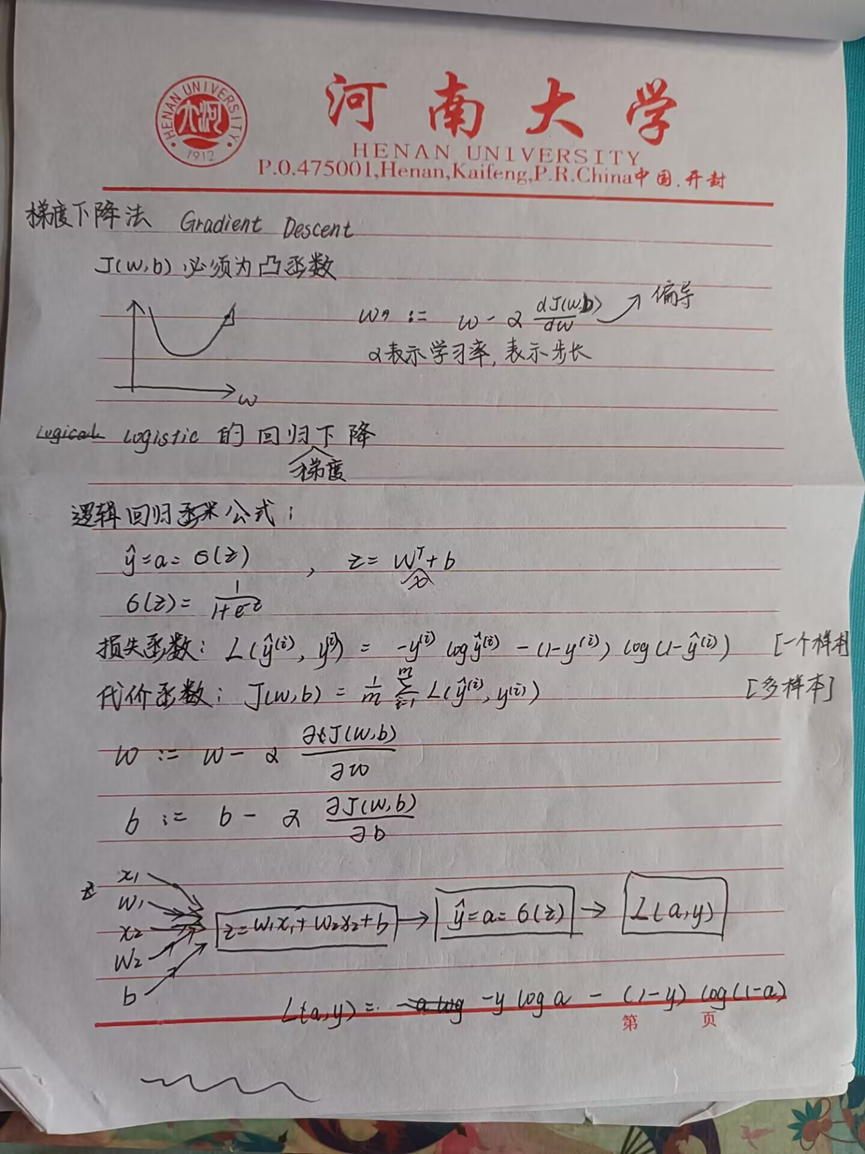 河南大学
HENAN UNIVERSITY
1912
HENAN UNIVERSITY
P.O.475001,Henan,Kaifeng,P.R.China中国.开封
梯度下降法 Gradient Descent
J(w,b) 必须为凸函数
w := w - α dJ(w,b)/dw → 偏导
α表示学习率, 表示步长
w
Logistic 的回归梯度下降
逻辑回归公式:
ŷ=a=σ(z) , z= wᵀx+b
σ(z)= 1/(1+e^-z)
损失函数: L(ŷ⁽ⁱ⁾, y⁽ⁱ⁾) = -y⁽ⁱ⁾ log ŷ⁽ⁱ⁾ - (1-y⁽ⁱ⁾) log(1-ŷ⁽ⁱ⁾) [一个样本
代价函数: J(w,b) = 1/m Σᵢ₌₁ᵐ L(ŷ⁽ⁱ⁾, y⁽ⁱ⁾) [多样本]
w := w - α ∂J(w,b)/∂w
b := b - α ∂J(w,b)/∂b
x₁
w₁
x₂
w₂
b
z=w₁x₁+w₂x₂+b → ŷ=a=σ(z) → L(a,y)
L(a,y) = -y log a - (1-y) log(1-a)
第 页